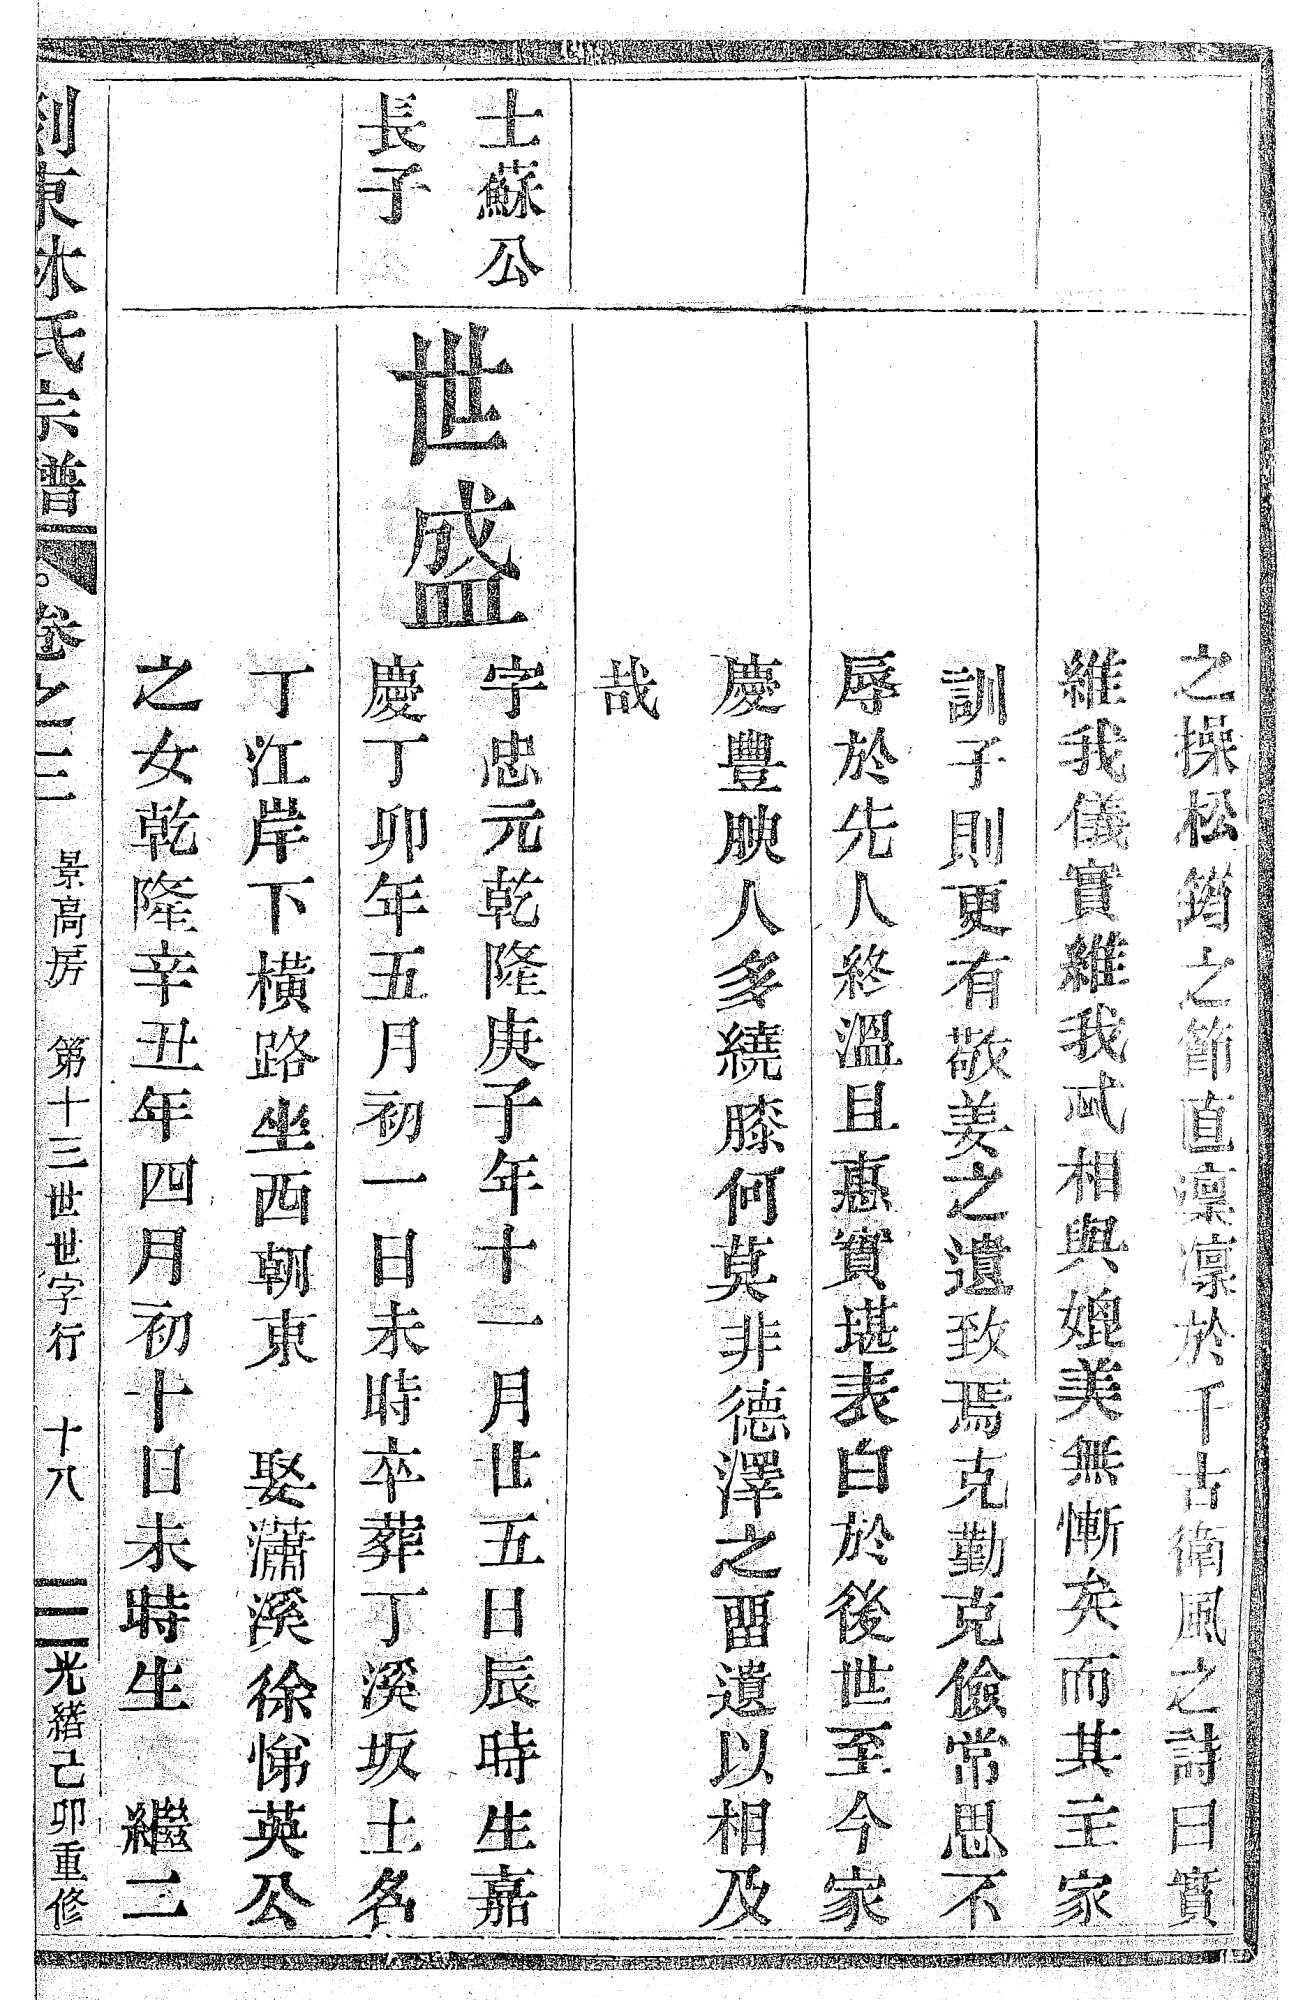 之操松筠之節直凛凛於千古衛風之詩曰實
維我儀實維我忒相與媲美無慚矣而其主家
訓子則更有敬姜之遺致焉克勤克儉常思不
辱於先人終溫且惠實堪表白於後世至今家
慶豐腴人多繞膝何莫非德澤之留遺以相及
哉
士蘇公
長子
世盛
字忠元乾隆庚子年十一月廿五日辰時生嘉
慶丁卯年五月初一日未時卒葬丁溪坂土名
丁江岸下橫路坐西朝東 娶瀟溪徐悌英公
之女乾隆辛丑年四月初十日未時生 繼二
剡東水氏宗譜 卷之三 景高房 第十三世世字行 十八 光緒己卯重修